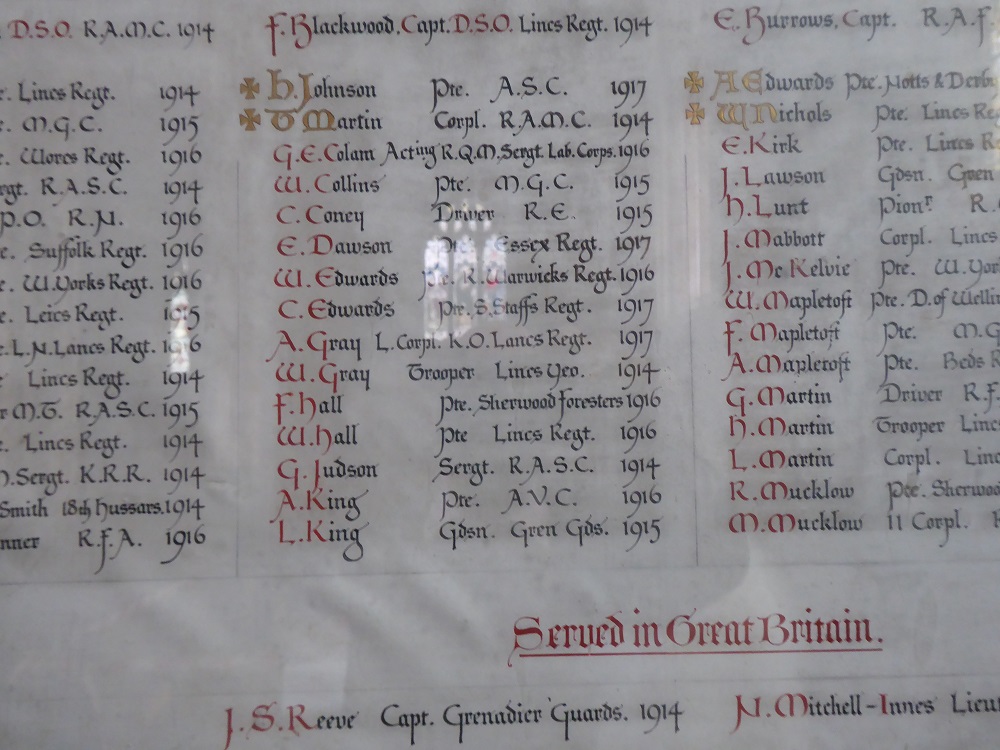 D.S.O. R.A.M.C. 1914
Lincs Regt. 1914
M.G.C. 1915
Worcs Regt. 1916
R.A.S.C. 1914
P.O. R.N. 1916
Suffolk Regt. 1916
W.Yorks Regt. 1916
Leics Regt. 1915
L.N.Lancs Regt. 1916
Lincs Regt. 1914
M.T. R.A.S.C. 1915
Lincs Regt. 1914
Sergt. K.R.R. 1914
Smith 18th Hussars. 1914
R.F.A. 1916
F. Blackwood. Capt. D.S.O. Lincs Regt. 1914
H. Johnson Pte. A.S.C. 1917
T Martin Corpl. R.A.M.C. 1914
G.E.Colam Acting R.Q.M.Sergt. Lab.Corps. 1916
W. Collins Pte. M.G.C. 1915
C. Coney Driver R.E. 1915
E. Dawson Pte. Essex Regt. 1917
W. Edwards Pte. R.Warwicks Regt. 1916
C. Edwards Pte. S.Staffs Regt. 1917
A. Gray L.Corpl. K.O.Lancs Regt. 1917
W. Gray Trooper Lincs Yeo. 1914
F. Hall Pte. Sherwood Foresters 1916
W. Hall Pte Lincs Regt. 1916
G. Judson Sergt. R.A.S.C. 1914
A. King Pte. A.V.C. 1916
L. King Gdsn. Gren Gds. 1915
E. Burrows, Capt. R.A.F.
A Edwards Pte. Notts & Derby
W Nichols Pte. Lincs
E. Kirk Pte. Lincs
J. Lawson Gdsn. Gren
H. Lunt Pionr.
J. Mabbott Corpl. Lincs
J. McKelvie Pte.
W. Mapletoft Pte. D. of
F. Mapletoft Pte.
A. Mapletoft Pte. Beds
G. Martin Driver
H. Martin Trooper
L. Martin Corpl.
R. Mucklow Pte.
M. Mucklow Corpl.
Served in Great Britain.
J. S. Reeve Capt. Grenadier Guards. 1914
N. Mitchell-Innes